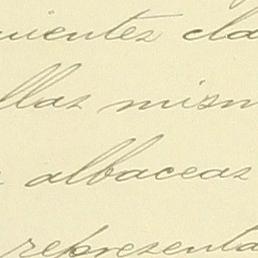 uientes cla
llas mism
albaceas
representa